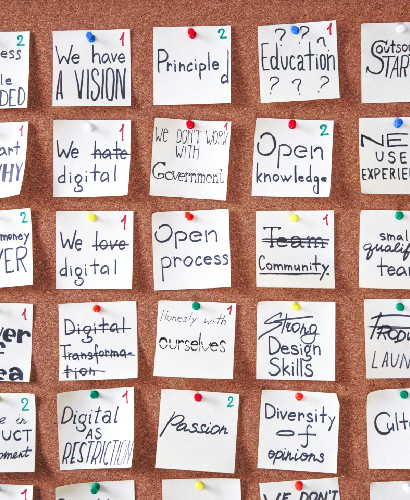 2
ess
le
DED
1
We have
A VISION
2
Principled
1
? ? ?
Education
? ? ?
Outso
START
1
art
WHY
1
We hate
digital
1
WE DON'T WORK
WITH
Government
2
Open
knowledge
NE
USE
EXPERIE
2
money
ER
1
We love
digital
Open
process
1
Team
Community.
small
qualif
team
1
er
ea
Digital
Transforma-
tion
1
Honesty with
ourselves
Strong
Design
Skills
PROD
LAUN
2
e in
UCT
pment
1
Digital
AS
RESTRICTION
2
Passion
Diversity
of
opinions
Cult
1
2
1
WE DON'T